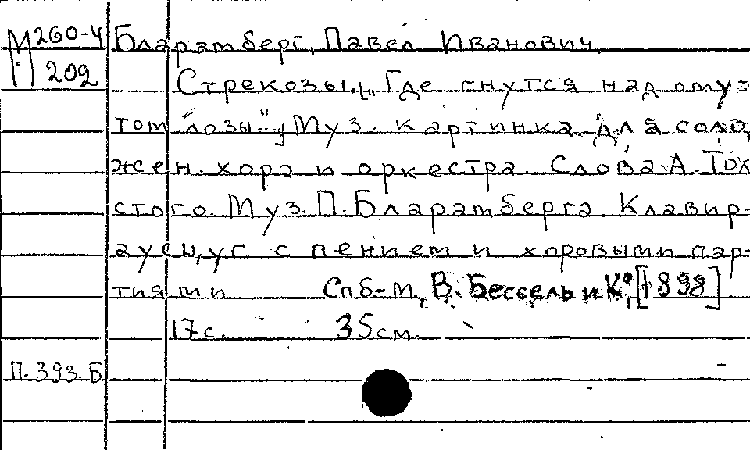 М 260-4 Бларамберг, Павел Иванович
П 202 Стрекозы, „Где гнутся над ому-
том лозы", Муз. картинка для соло,
жен. хора и оркестра. Слова А. Тол-
стого. Муз. П. Бларамберга. Клавир-
аусцуг с пением и хоровыми пар-
тиями Спб-М, В. Бессель и К°, [1898]
17 с. 35 см.
П. 393 Б